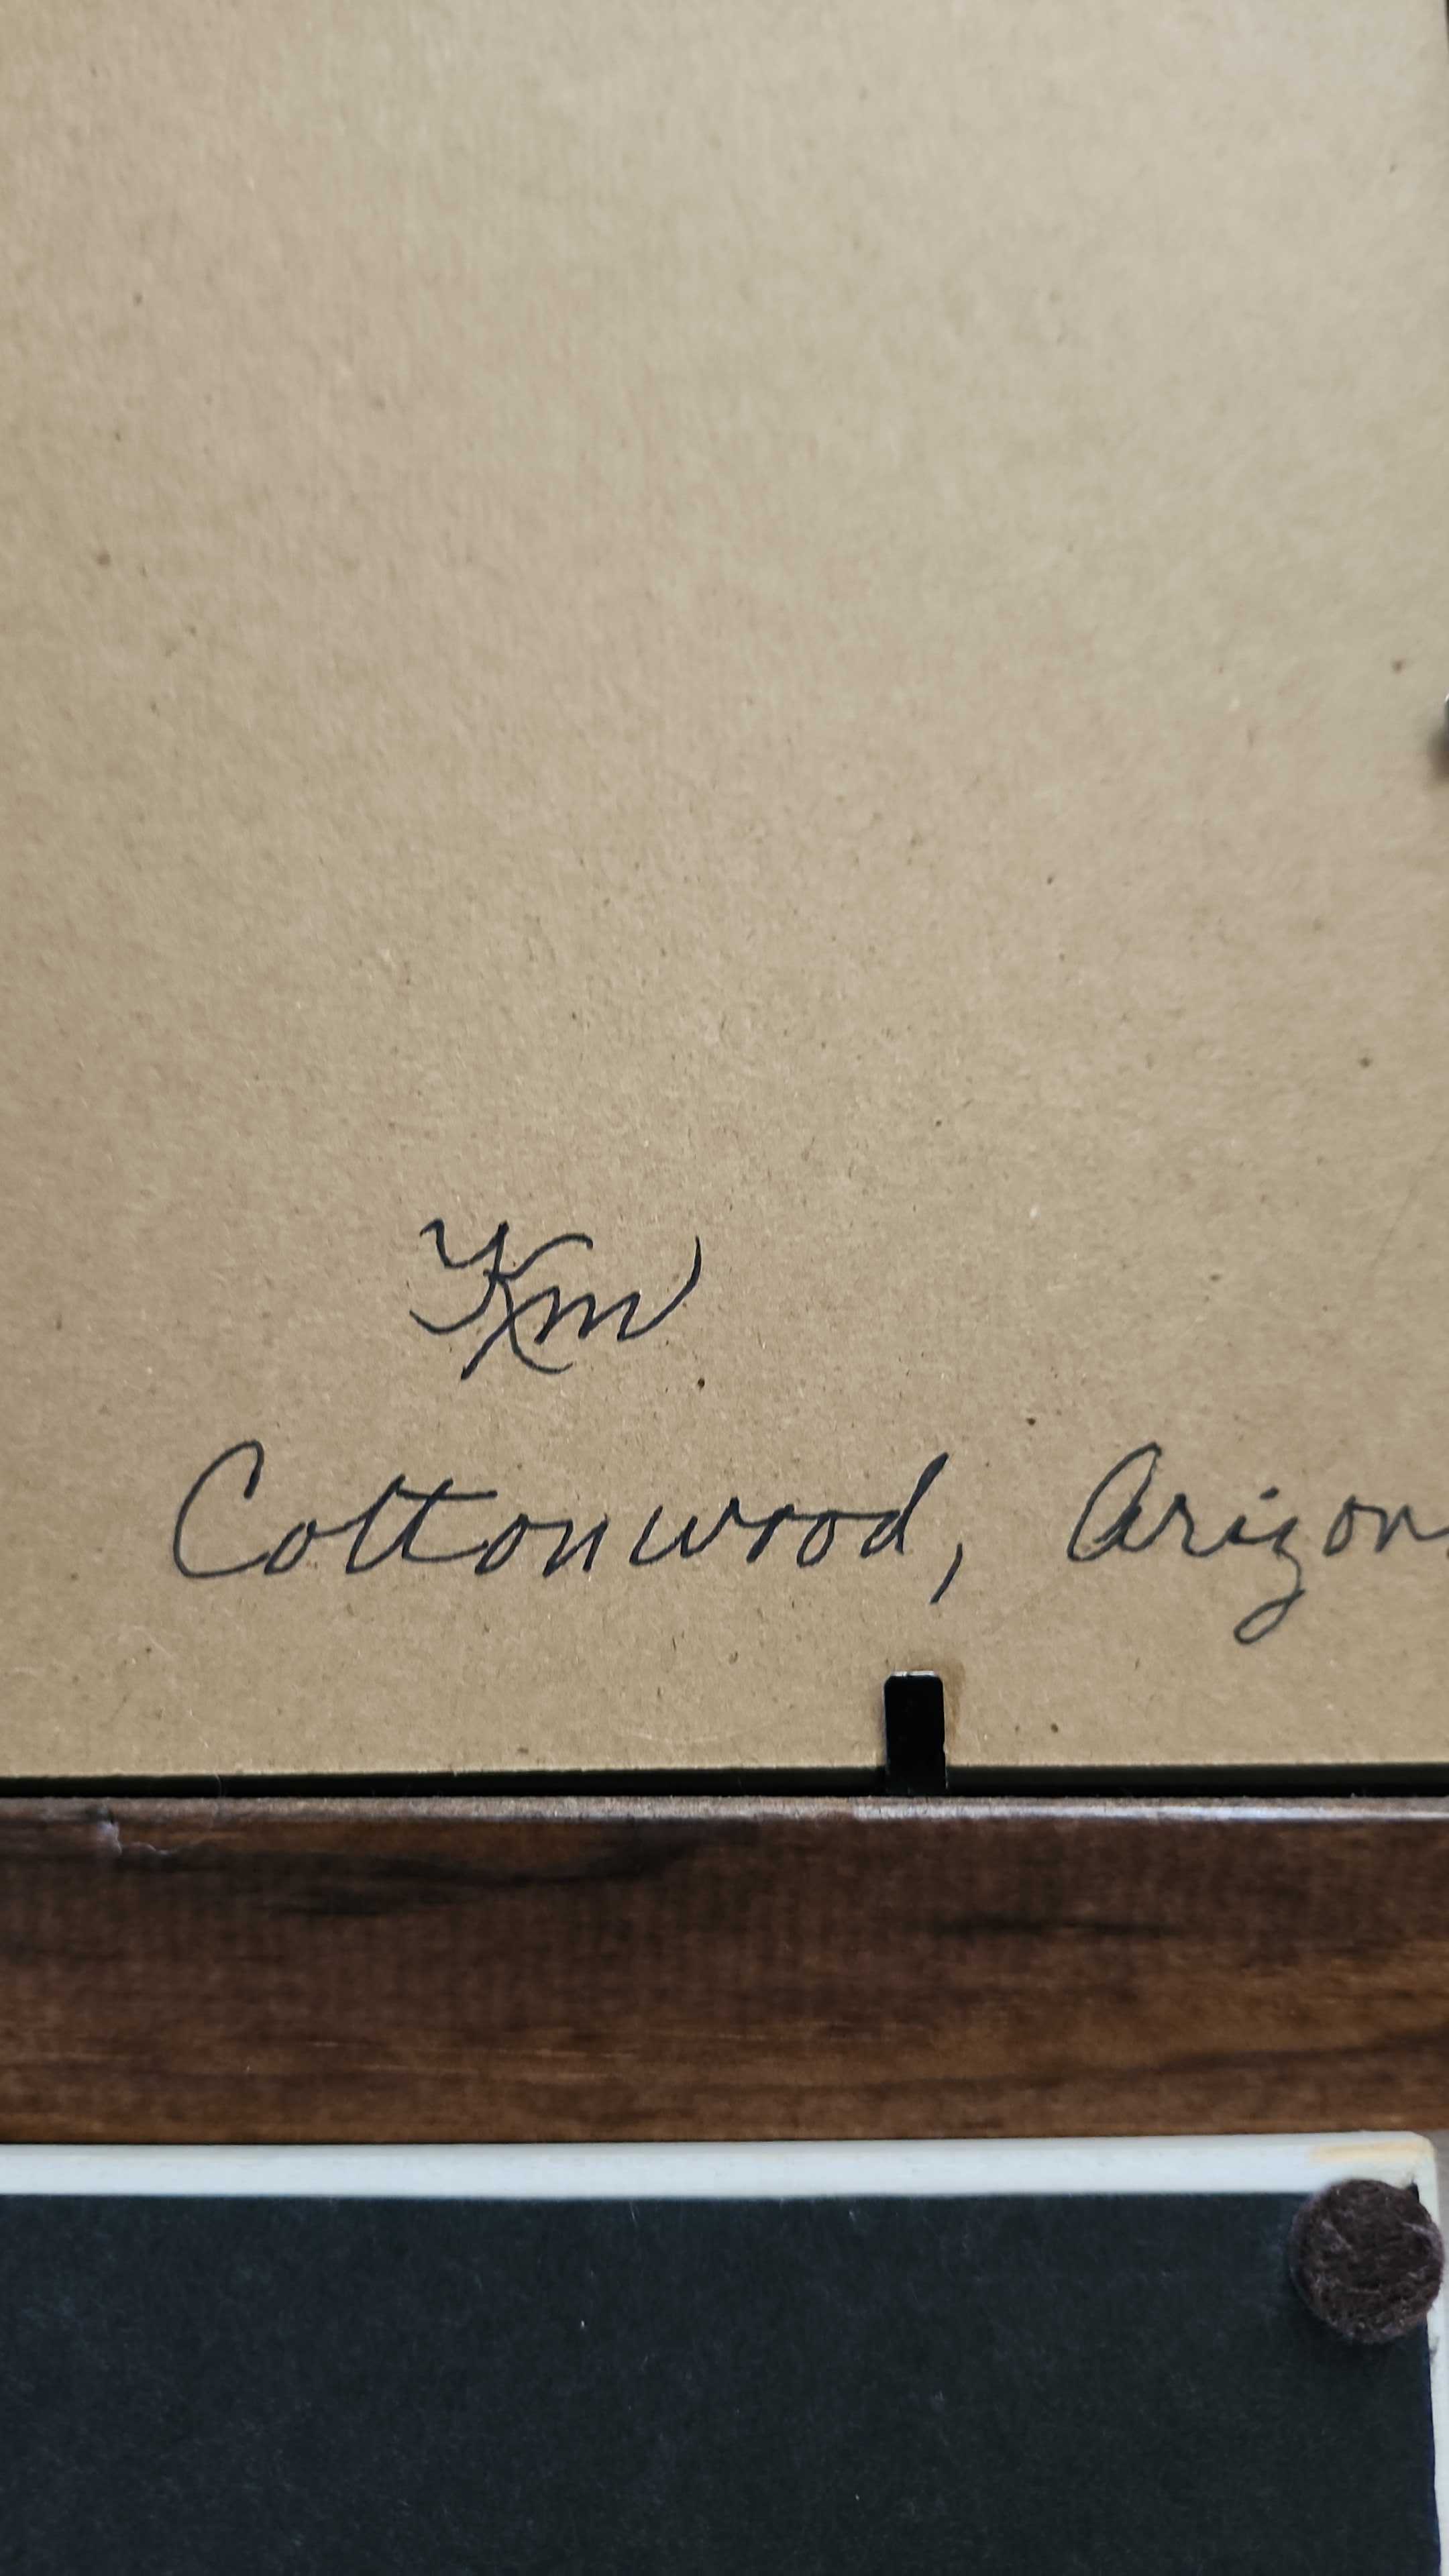 Km
Cottonwood, Arizon